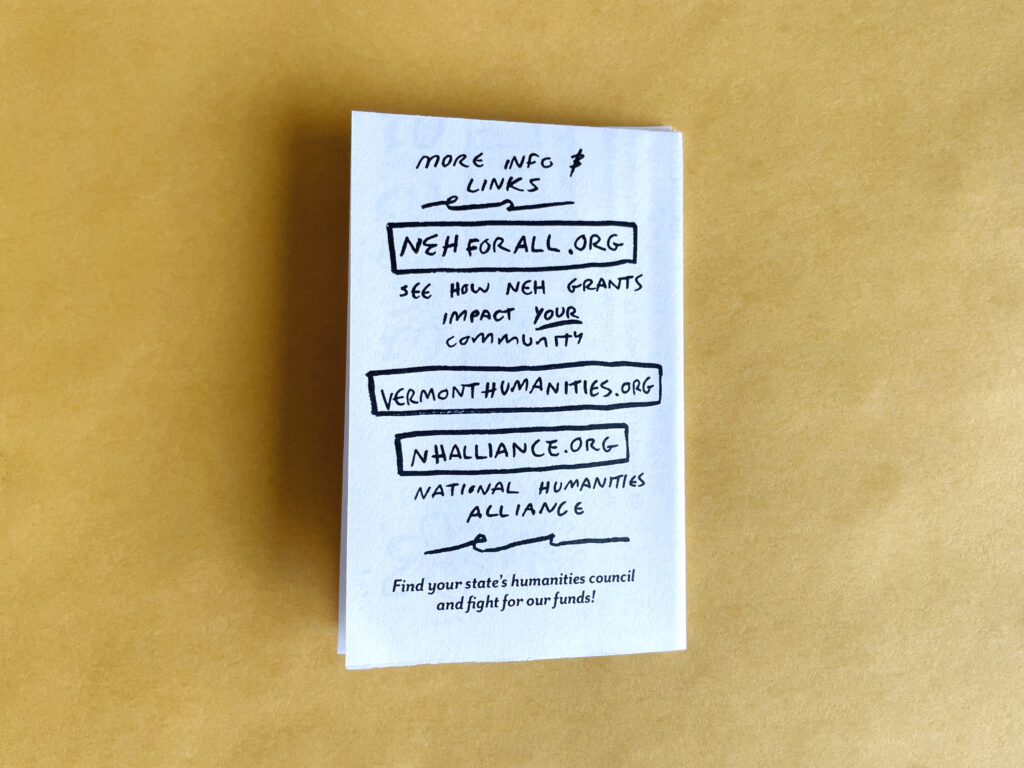 MORE INFO &
LINKS
NEHFORALL.ORG
SEE HOW NEH GRANTS
IMPACT YOUR
COMMUNITY
VERMONTHUMANITIES.ORG
NHALLIANCE.ORG
NATIONAL HUMANITIES
ALLIANCE
Find your state's humanities council
and fight for our funds!